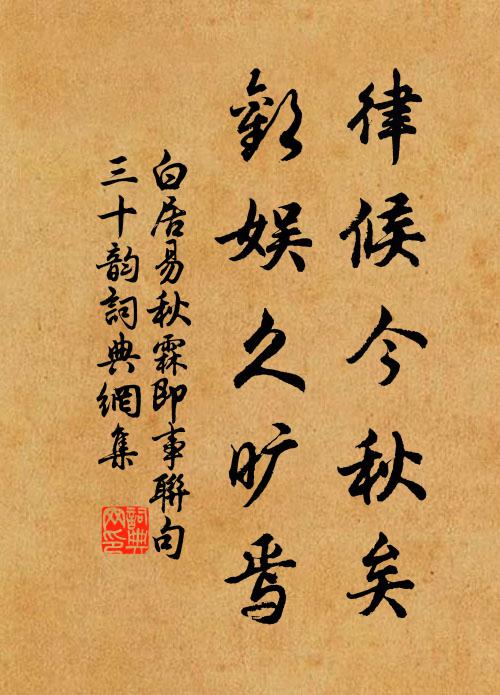 律候今秋矣
歡娱久旷焉
白居易秋霖即事聯句
三十韵詞典網集
詞典网印